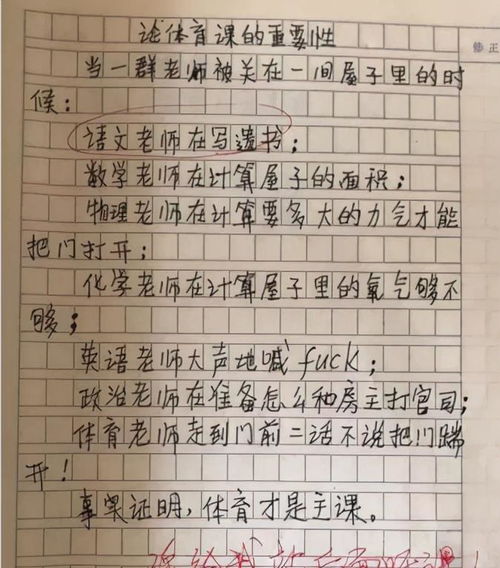 论体育课的重要性
修正
当一群老师被关在一间屋子里的时
候:
语文老师在写遗书;
数学老师在计算屋子的面积;
物理老师在计算要多大的力气才能
把门打开;
化学老师在计算屋子里的氧气够不
够;
英语老师大声地喊fuck;
政治老师在准备怎么和房主打官司;
体育老师走到门前二话不说把门踹
开!
事实证明,体育才是主课。